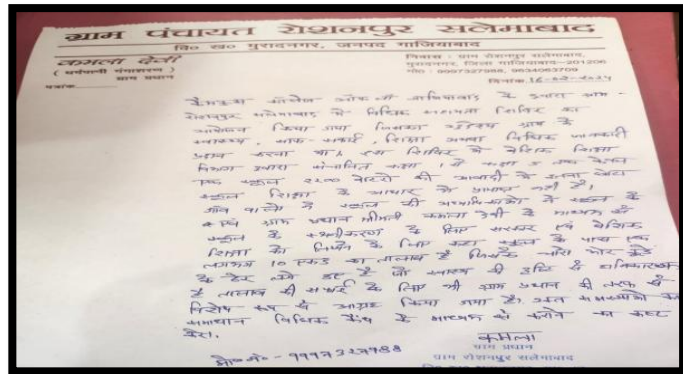 ग्राम पंचायत रोशनपुर सलेमाबाद
वि० ख० मुरादनगर, जनपद गाजियाबाद
कमला देवी
( धर्मपत्नी गंगाशरण )
ग्राम प्रधान
पत्रांक
निवास : ग्राम रोशनपुर सलेमाबाद,
मुरादनगर, जिला गाजियाबाद-201206
मो० : 9997327988, 9634063709
दिनांक 16-02-2024
कॉलेज ऑफ लॉ गाजियाबाद के द्वारा ग्राम-
रोशनपुर सलेमाबाद में विधिक सहायता शिविर का
आयोजन किया गया जिसका उद्देश्य ग्राम के
स्वास्थ्य, साफ-सफाई, शिक्षा अथवा विधिक जानकारी
प्रदान करना था। इस शिविर में बेसिक शिक्षा
विभाग द्वारा संचालित कक्षा 1 से कक्षा 5 तक केवल
एक स्कूल 2200 वोटरो की आबादी में इतना छोटा
स्कूल शिक्षा के आधार से नहीं है।
गाँव वालो ने स्कूल की अध्यापिकाओं ने स्कूल के
ग्राम प्रधान श्रीमती कमला देवी के माध्यम से
स्कूल के के लिए सरकार एवं बेसिक
शिक्षा को के लिए कहा स्कूल के पास एक
लगभग 10 एकड का तालाब है जिसके चारो ओर कूडे
के ढेर लगे हुए है जो स्वास्थ्य की दृष्टि से हानिकारक
है तालाब की सफाई के लिए भी ग्राम प्रधान की तरफ से
विशेष रूप से आग्रह किया गया है। अतः समस्याओं का
समाधान विधिक कैंप के माध्यम से कराने का कष्ट
करे।
कमला
ग्राम प्रधान
मो० नं०- 9997327988
ग्राम रोशनपुर सलेमाबाद